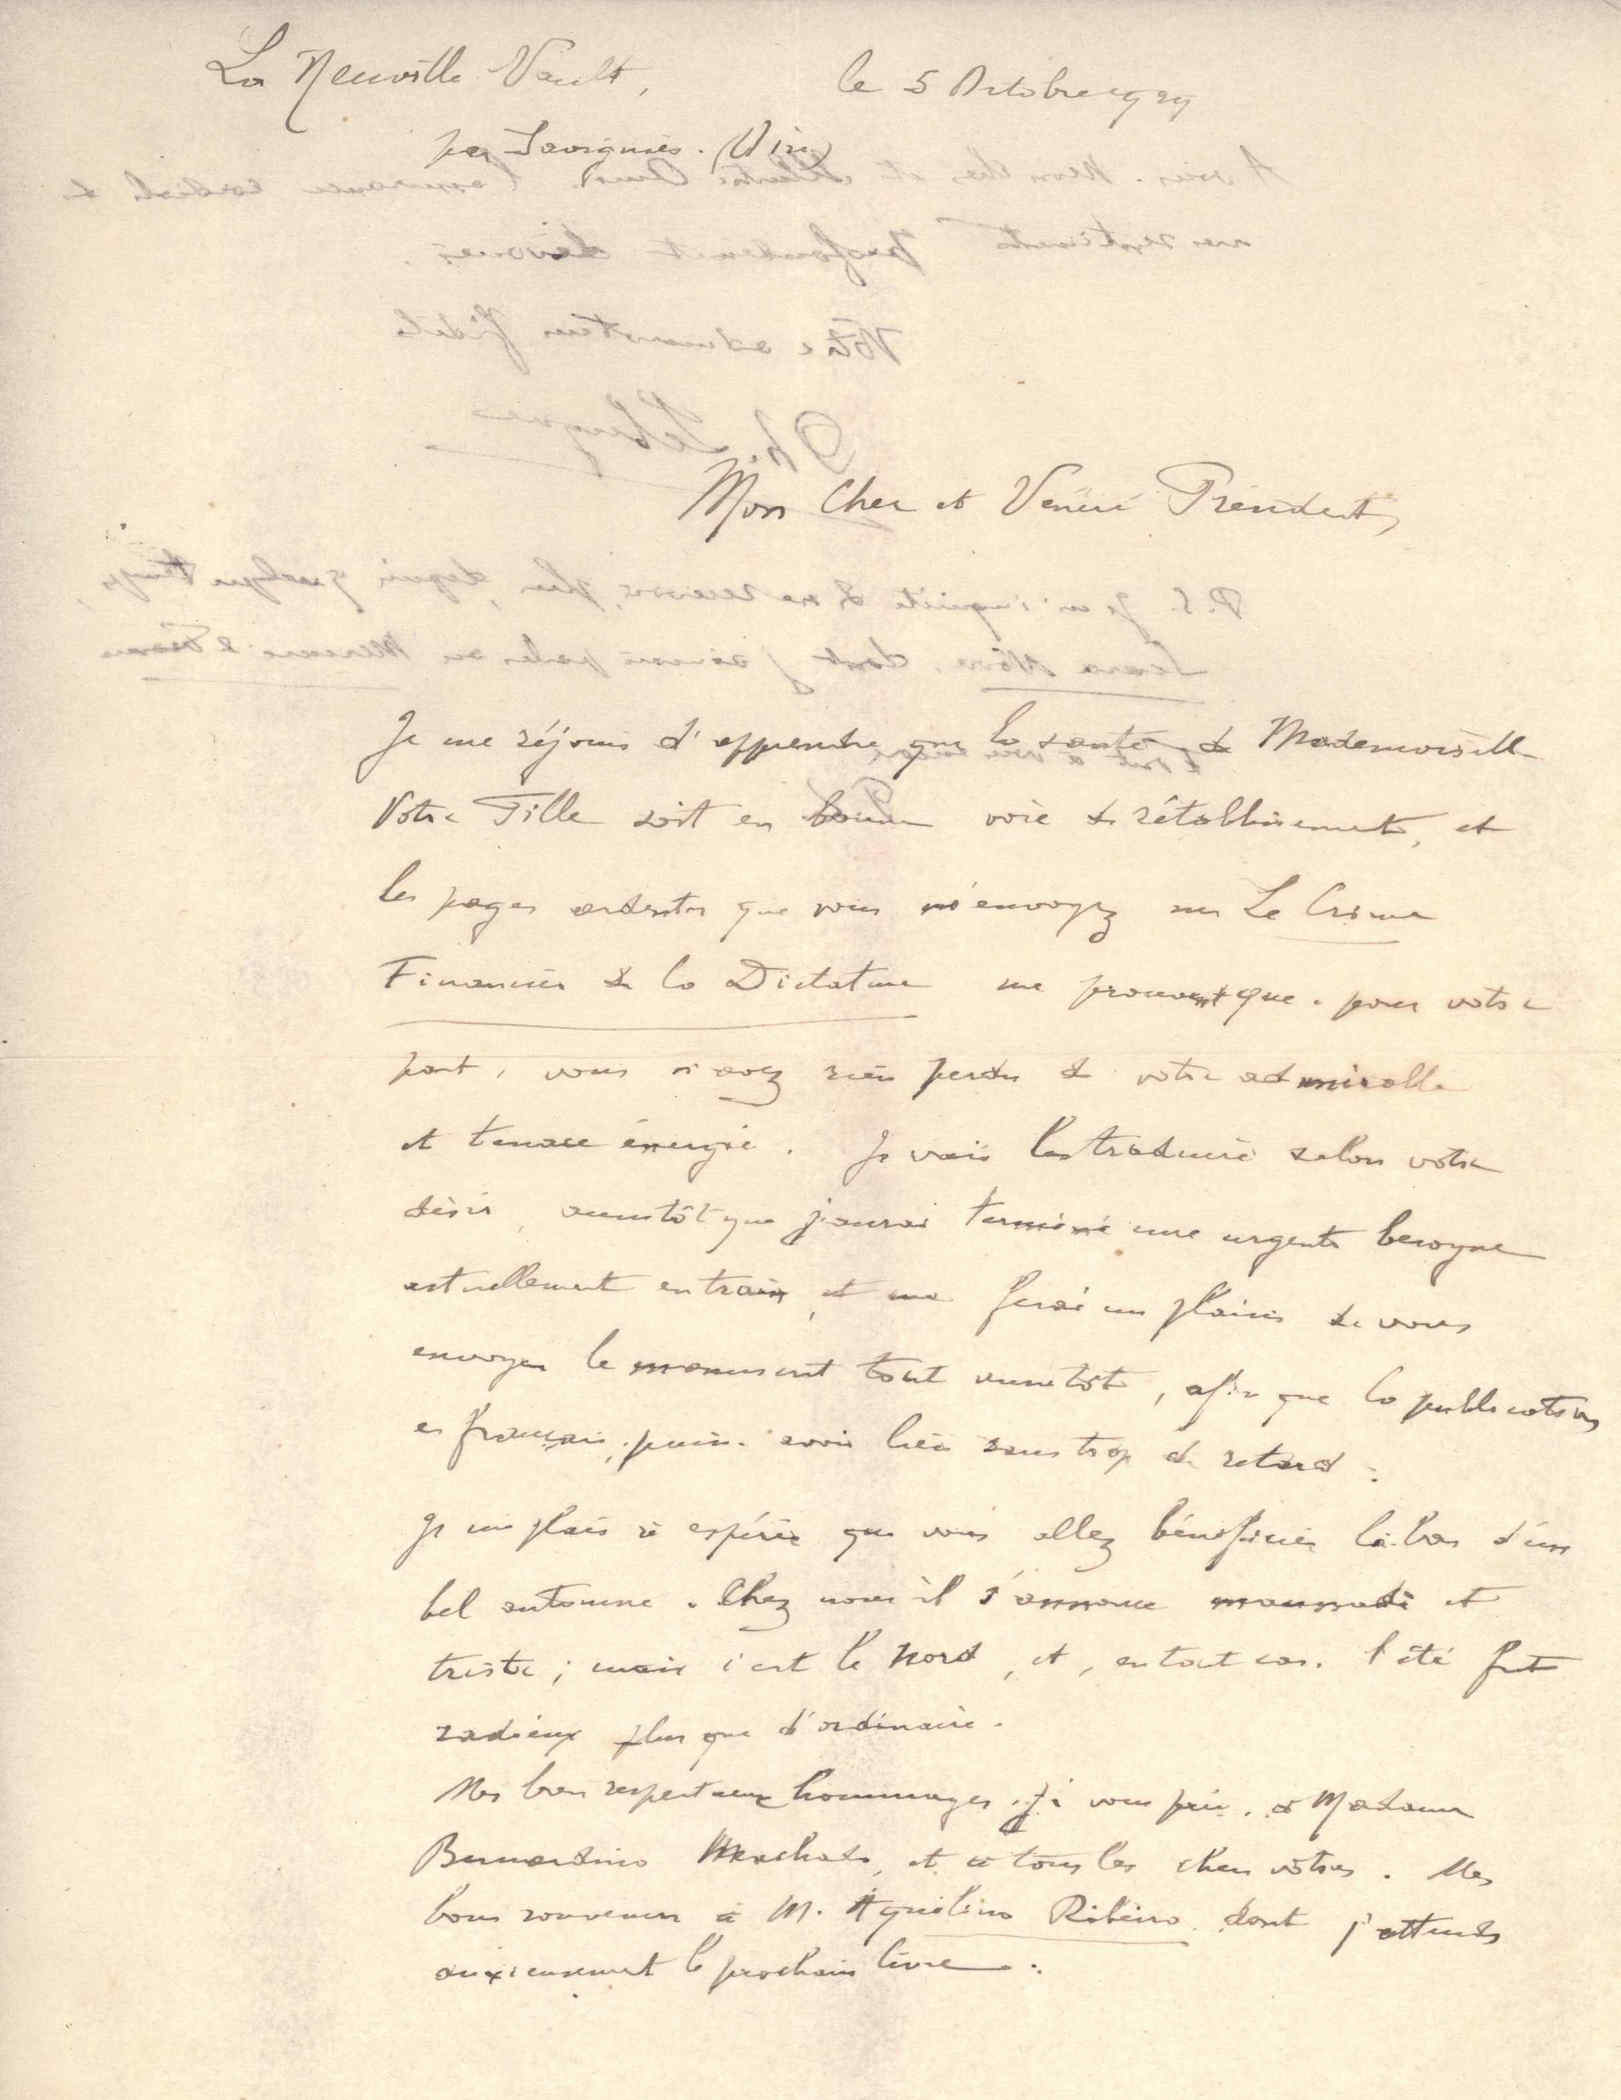 La Neuville Vault,
le 5 Octobre 1929
par Savignies. (Oise)
Mon Cher et Vénéré Président,
Je me réjouis d'apprendre que la santé de Mademoiselle
Votre Fille soit en bonne voie de rétablissement, et
les pages ardentes que vous m'envoyez sur Le Crime
Financier de la Dictature me prouvent que, pour votre
part, vous n'avez rien perdu de votre admirable
et tenace énergie. Je vais les traduire selon votre
désir, aussitôt que j'aurai terminé une urgente besogne
actuellement en train, et me ferai un plaisir de vous
envoyer le manuscrit tout aussitôt, afin que la publication
en français, puisse avoir lieu sans trop de retard.
Je me plais à espérer que vous allez bénéficier là-bas d'un
bel automne. Chez nous il s'annonce maussade et
triste ; mais c'est le Nord, et, en tout cas, l'été fut
radieux plus que d'ordinaire.
Mes bien respectueux hommages, je vous prie, à Madame
Bernardino Machado, et à tous les chers vôtres. Mes
bons souvenirs à M. Aquilino Ribeiro dont j'attends
anxieusement le prochain livre.
A vous, Mon cher et Illustre Ami, l'assurance cordiale de
mes sentiments profondément dévoués.
Votre admirateur fidèle
Ph. Lebesgue
P.S. Je m'inquiète de ne recevoir plus, depuis quelque temps,
Seara Nova, dont j'aimais parler au Mercure de France